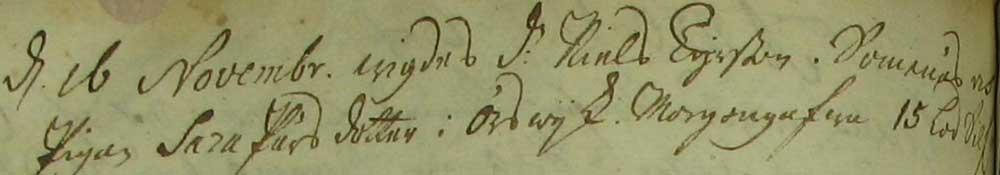 d. 16 Novembr. wigdes d: Niels Ersson. Somnäs
Pigan Sara Pärs dotter i Örswijk. Morgongafwa 15 Lod